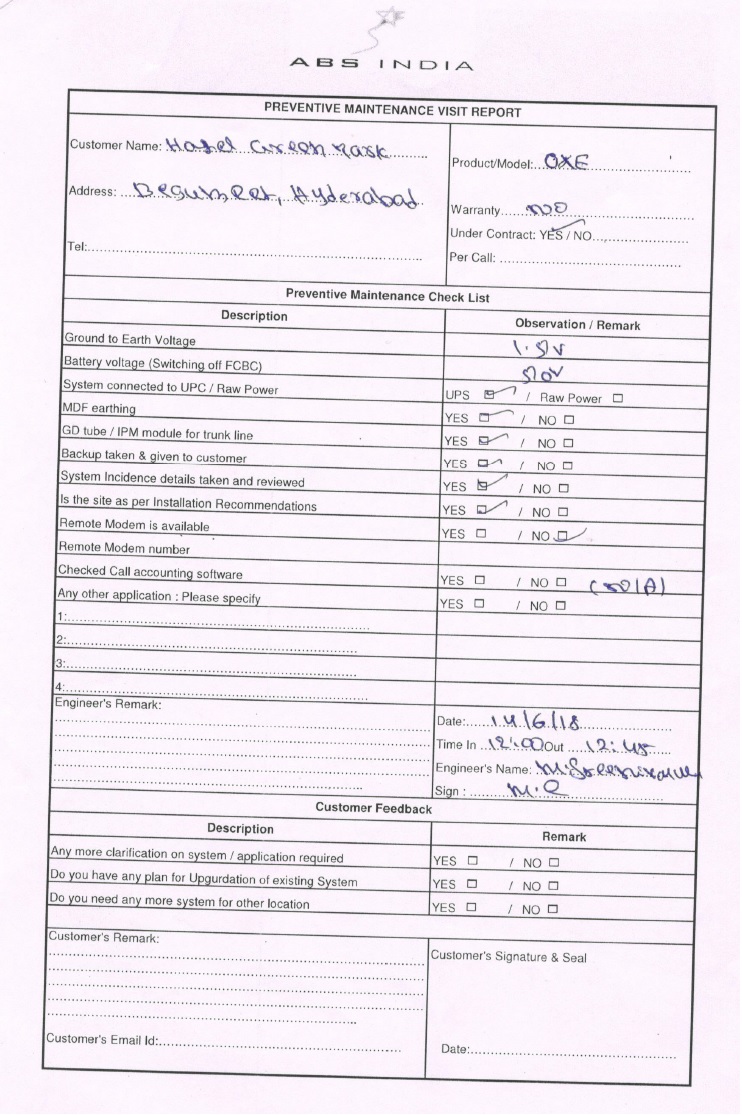 ABS INDIA
PREVENTIVE MAINTENANCE VISIT REPORT
Customer Name: Hotel Green Park
Product/Model: OXE
Address: Begumpet, Hyderabad
Warranty NO
Under Contract: YES / NO
Tel:
Per Call:
Preventive Maintenance Check List
Description Observation / Remark
Ground to Earth Voltage 1.5V
Battery voltage (Switching off FCBC)
System connected to UPC / Raw Power UPS / Raw Power
MDF earthing YES / NO
GD tube / IPM module for trunk line YES / NO
Backup taken & given to customer YES / NO
System Incidence details taken and reviewed YES / NO
Is the site as per Installation Recommendations YES / NO
Remote Modem is available YES / NO
Remote Modem number
Checked Call accounting software YES / NO
Any other application : Please specify YES / NO
1:
2:
3:
4:
Engineer's Remark:
Date: 14/6/18
Time In 12:00 Out 12:45
Engineer's Name:
Sign :
Customer Feedback
Description Remark
Any more clarification on system / application required YES / NO
Do you have any plan for Upgurdation of existing System YES / NO
Do you need any more system for other location YES / NO
Customer's Remark:
Customer's Signature & Seal
Customer's Email Id:
Date: